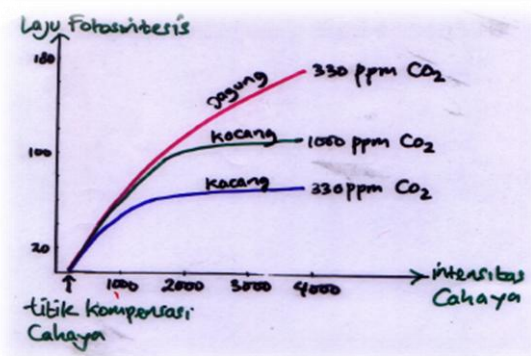 Laju Fotosintesis
180
Jagung
330 ppm CO2
Kacang
1000 ppm CO2
100
Kacang
330 ppm CO2
20
1000 2000 3000 4000
intensitas
Cahaya
titik kompensasi
Cahaya